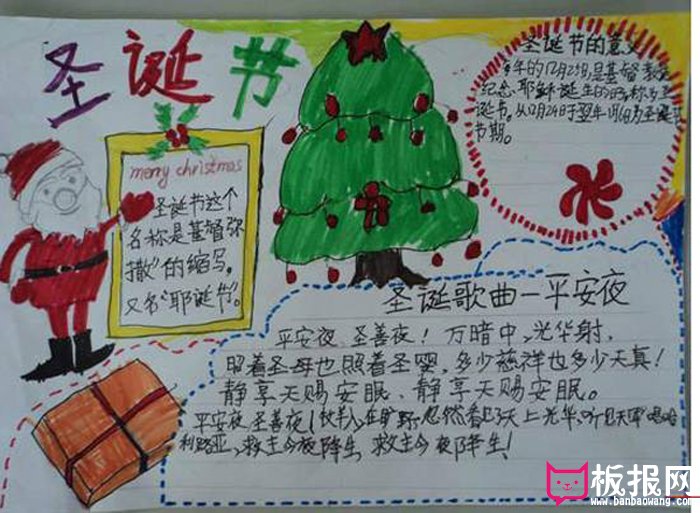 圣诞节
merry christmas
圣诞节这个
名称是基督弥
撒"的缩写。
又名"耶诞节"。
圣诞节的意义
年的12月25日,是基督教
纪念耶稣诞生的日子,称为圣
诞节。从12月24日于翌年1月6日为圣诞
节期。
圣诞歌曲—平安夜
平安夜、圣善夜!万暗中,光华射,
照着圣母也照着圣婴,多少慈祥也多少天真!
静享天赐安眠、静享天赐安眠。
平安夜、圣善夜!牧羊人,在旷野,忽然看见了天上光华,听见天军唱哈
利路亚,救主今夜降生 救主今夜降生!
板报网
www.banbaowang.com